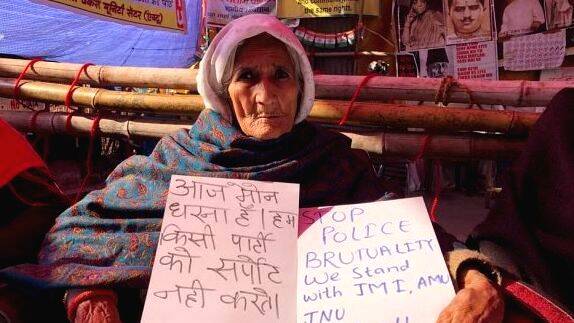 आज मौन
धरना है । हम
किसी पार्टी
को सर्पोट
नही करते।
STOP
POLICE
BRUTUALITY
We Stand
with JMI, AMU
JNU